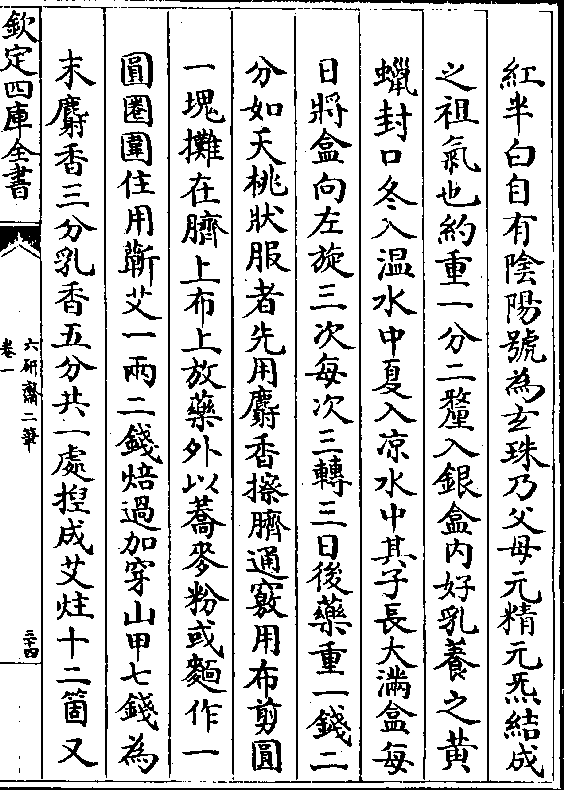 紅半白自有陰陽號為玄珠乃父母元精元炁結成
之祖氣也約重一分二釐入銀盒内好乳養之黄
蠟封口冬入温水中夏入凉水中其子長大滿盒每
日將盒向左旋三次每次三轉三日後藥重一錢二
分如天桃狀服者先用麝香擦臍通竅用布剪圓
一塊攤在臍上布上放藥外以蕎麥粉或麵作一
圓圈圍住用蘄艾一兩二錢焙過加穿山甲七錢為
末麝香三分乳香五分共一處揑成艾炷十二箇又
欽定四庫全書
六研齋二筆
卷一
三十四